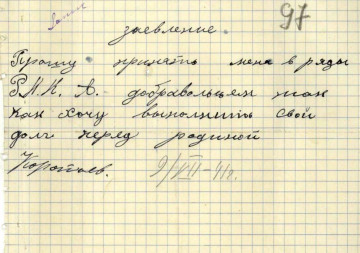 97
заевление.
Прошу принять меня в ряды
Р.К.К.А. добравольцем так
как хочу выполнить свой
долг перед родиной
9/VII-41г.